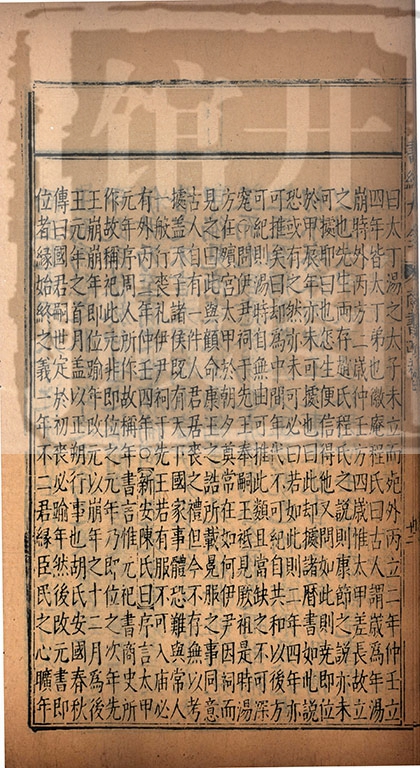 曰太丁湯之太子未立而死外丙立二年仲壬立
四年皆太丁弟也歟廢程氏曰古人謂歲為年湯
崩時外丙方二歲仲壬方四歲惟太甲差長故立
之也先生兩存趙氏程氏之說則康節之說亦未
可據耶曰也怎生便信得他又問如此則堯即位
於甲辰年亦未可據也曰此却據諸曆書如此說
恐或有之然亦未可必曰若如此則二年四年亦
可推矣曰却為中間年代不可紀自共和以後方
可紀則湯時自無由可推此類且當闕之不可深
究問伊尹祠于先王奉嗣王祗見厥祖是時湯
方在殯宮太甲於朝夕奠常在如何伊尹因祠而
見之曰此與顧命康王之誥所載冕服之事同意
古人自有一件人君居喪之禮但今不存無以考
據蓋天子諸侯既有天下國家事體恐難與常人
一般行喪禮若祠于先王服不可入廟必
有外丙二年仲壬四年○新安陳氏曰序言太甲
元年序周人所作故稱年書言惟元祀商史所
作故稱祀此元非即位之元年乃即位之次年先
王崩年即位踰年改元以崩年之十二月為後
王元年之首月蓋以正朔行事也胡氏安國春秋
傳曰國君嗣世定於初喪必踰年然後改元書即
位者緣始終之義一年不二君緣臣民之心曠年